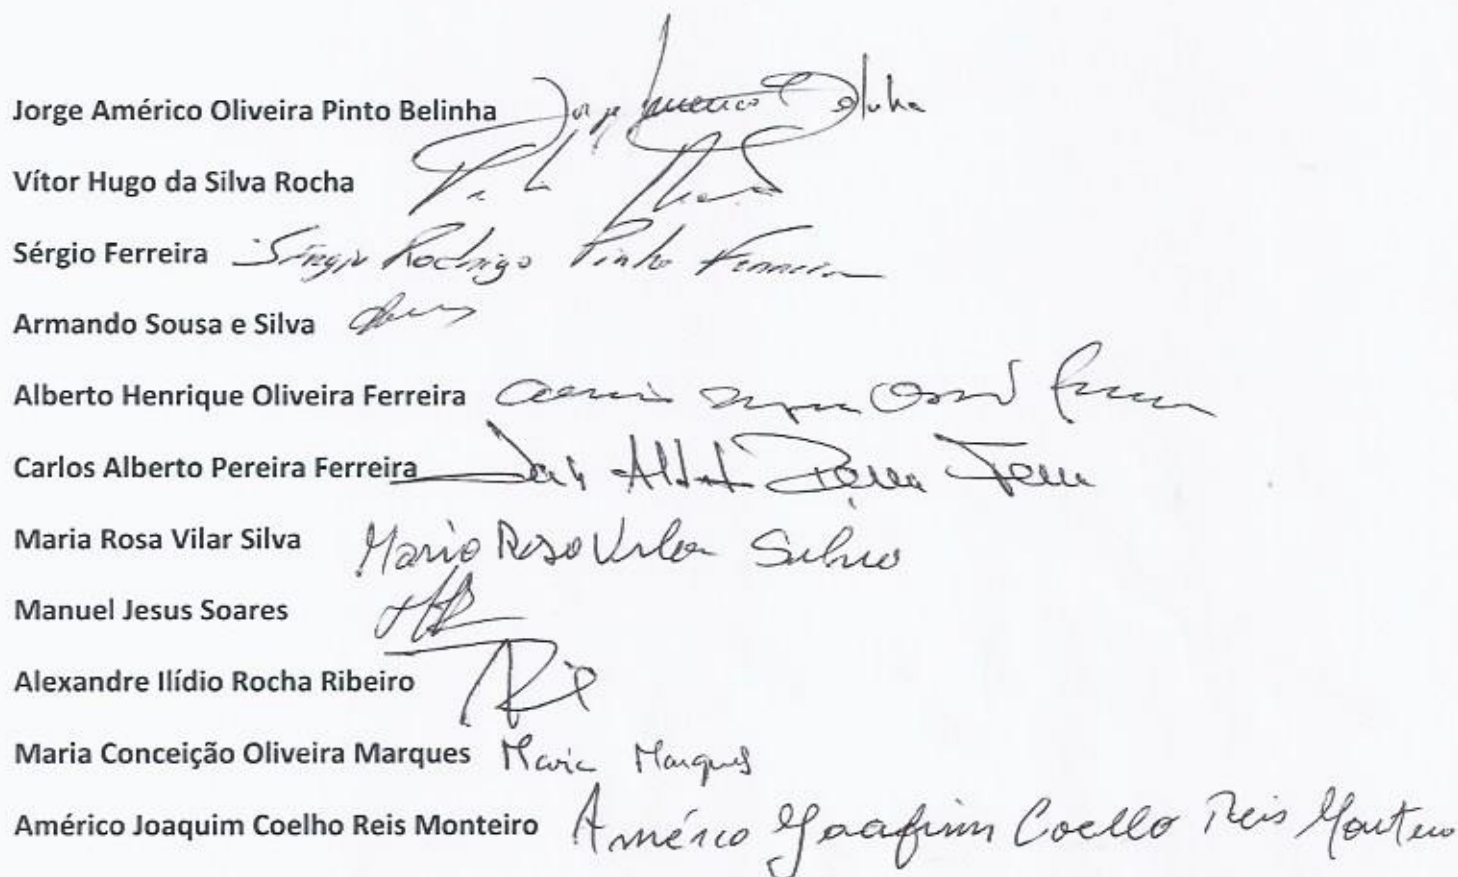 Jorge Américo Oliveira Pinto Belinha Jorge Américo Belinha
Vítor Hugo da Silva Rocha
Sérgio Ferreira Sérgio Rodrigo Pinho Ferreira
Armando Sousa e Silva
Alberto Henrique Oliveira Ferreira
Carlos Alberto Pereira Ferreira
Maria Rosa Vilar Silva Maria Rosa Vilar Silva
Manuel Jesus Soares
Alexandre Ilídio Rocha Ribeiro
Maria Conceição Oliveira Marques Maria Marques
Américo Joaquim Coelho Reis Monteiro Américo Joaquim Coelho Reis Monteiro